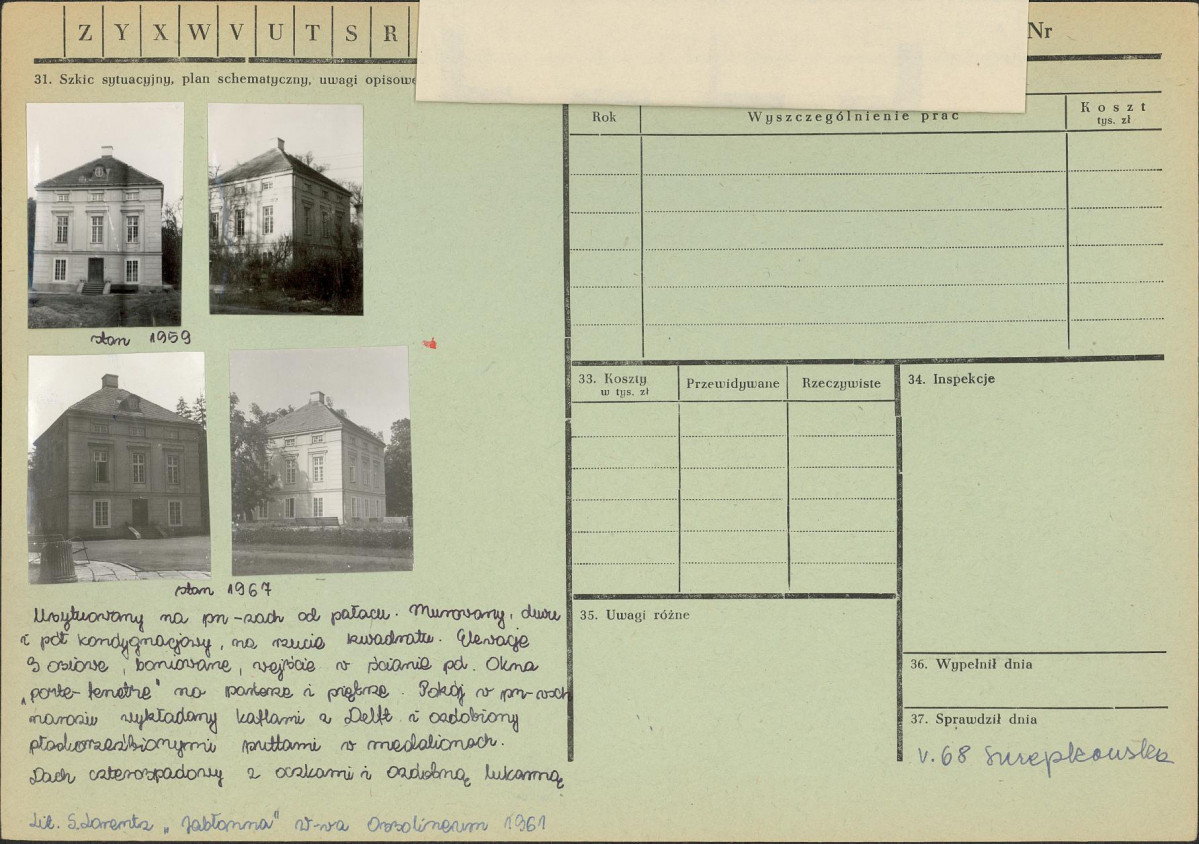 Z Y X W V U T S R
Nr
31. Szkic sytuacyjny, plan schematyczny, uwagi opisowe
Rok
Wyszczególnienie prac
Koszt
tys. zł
stan 1959
stan 1967
Usytuowany na pn-zach od pałacu. Murowany, dwu
i pół kondygnacjowy, na rzucie kwadratu. Elewacje
3 osiowe, boniowane, wejście w ścianie pd. Okna
„porte-fenetre" na parterze i piętrze. Pokój w pn-wsch
narożu wykładany kaflami z Delft i ozdobiony
płaskorzeźbionymi puttami w medalionach.
Dach czterospadowy z oczkami i ozdobną lukarną
Lit. S. Lorentz „Jabłonna" W-wa Ossolineum 1961
33. Koszty
w tys. zł
Przewidywane
Rzeczywiste
34. Inspekcje
35. Uwagi różne
36. Wypełnił dnia
37. Sprawdził dnia
V. 68